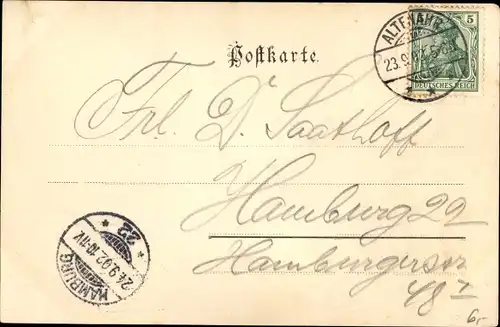 Postkarte.
ALTENAHR
23.9.02
5
DEUTSCHES REICH
Frl. D. Saathoff
Hamburg 22
Hamburgerstr
48 I
HAMBURG
24.9.02. 10-11V
* 22 *
6,-